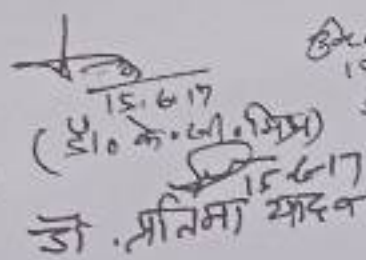 15.6.17
(डॉ० के०जी०मिश्र)
15.6.17
डॉ. प्रतिमा यादव